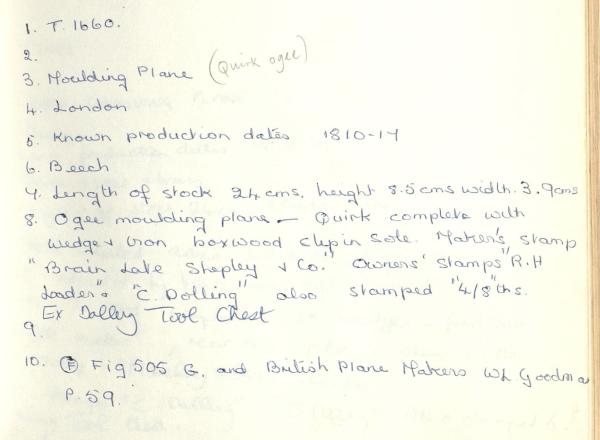 1. T. 1660.
2.
3. Moulding Plane (Quirk ogee)
4. London
5. Known production dates 1810-17
6. Beech
7. Length of stock 24 cms. height 8.5cms width. 3.9cms
8. Ogee moulding plane - Quirk complete with
wedge & iron boxwood slip in sole. Maker's stamp
"Brain Late Shepley & Co." Owners' stamps "R.H
Loader" & "C. Dolling" also stamped "4/8"ths.
Ex Dalley Tool Chest
9.
10. (F) Fig 505 G. and British Plane Makers WL Goodman
P. 59.